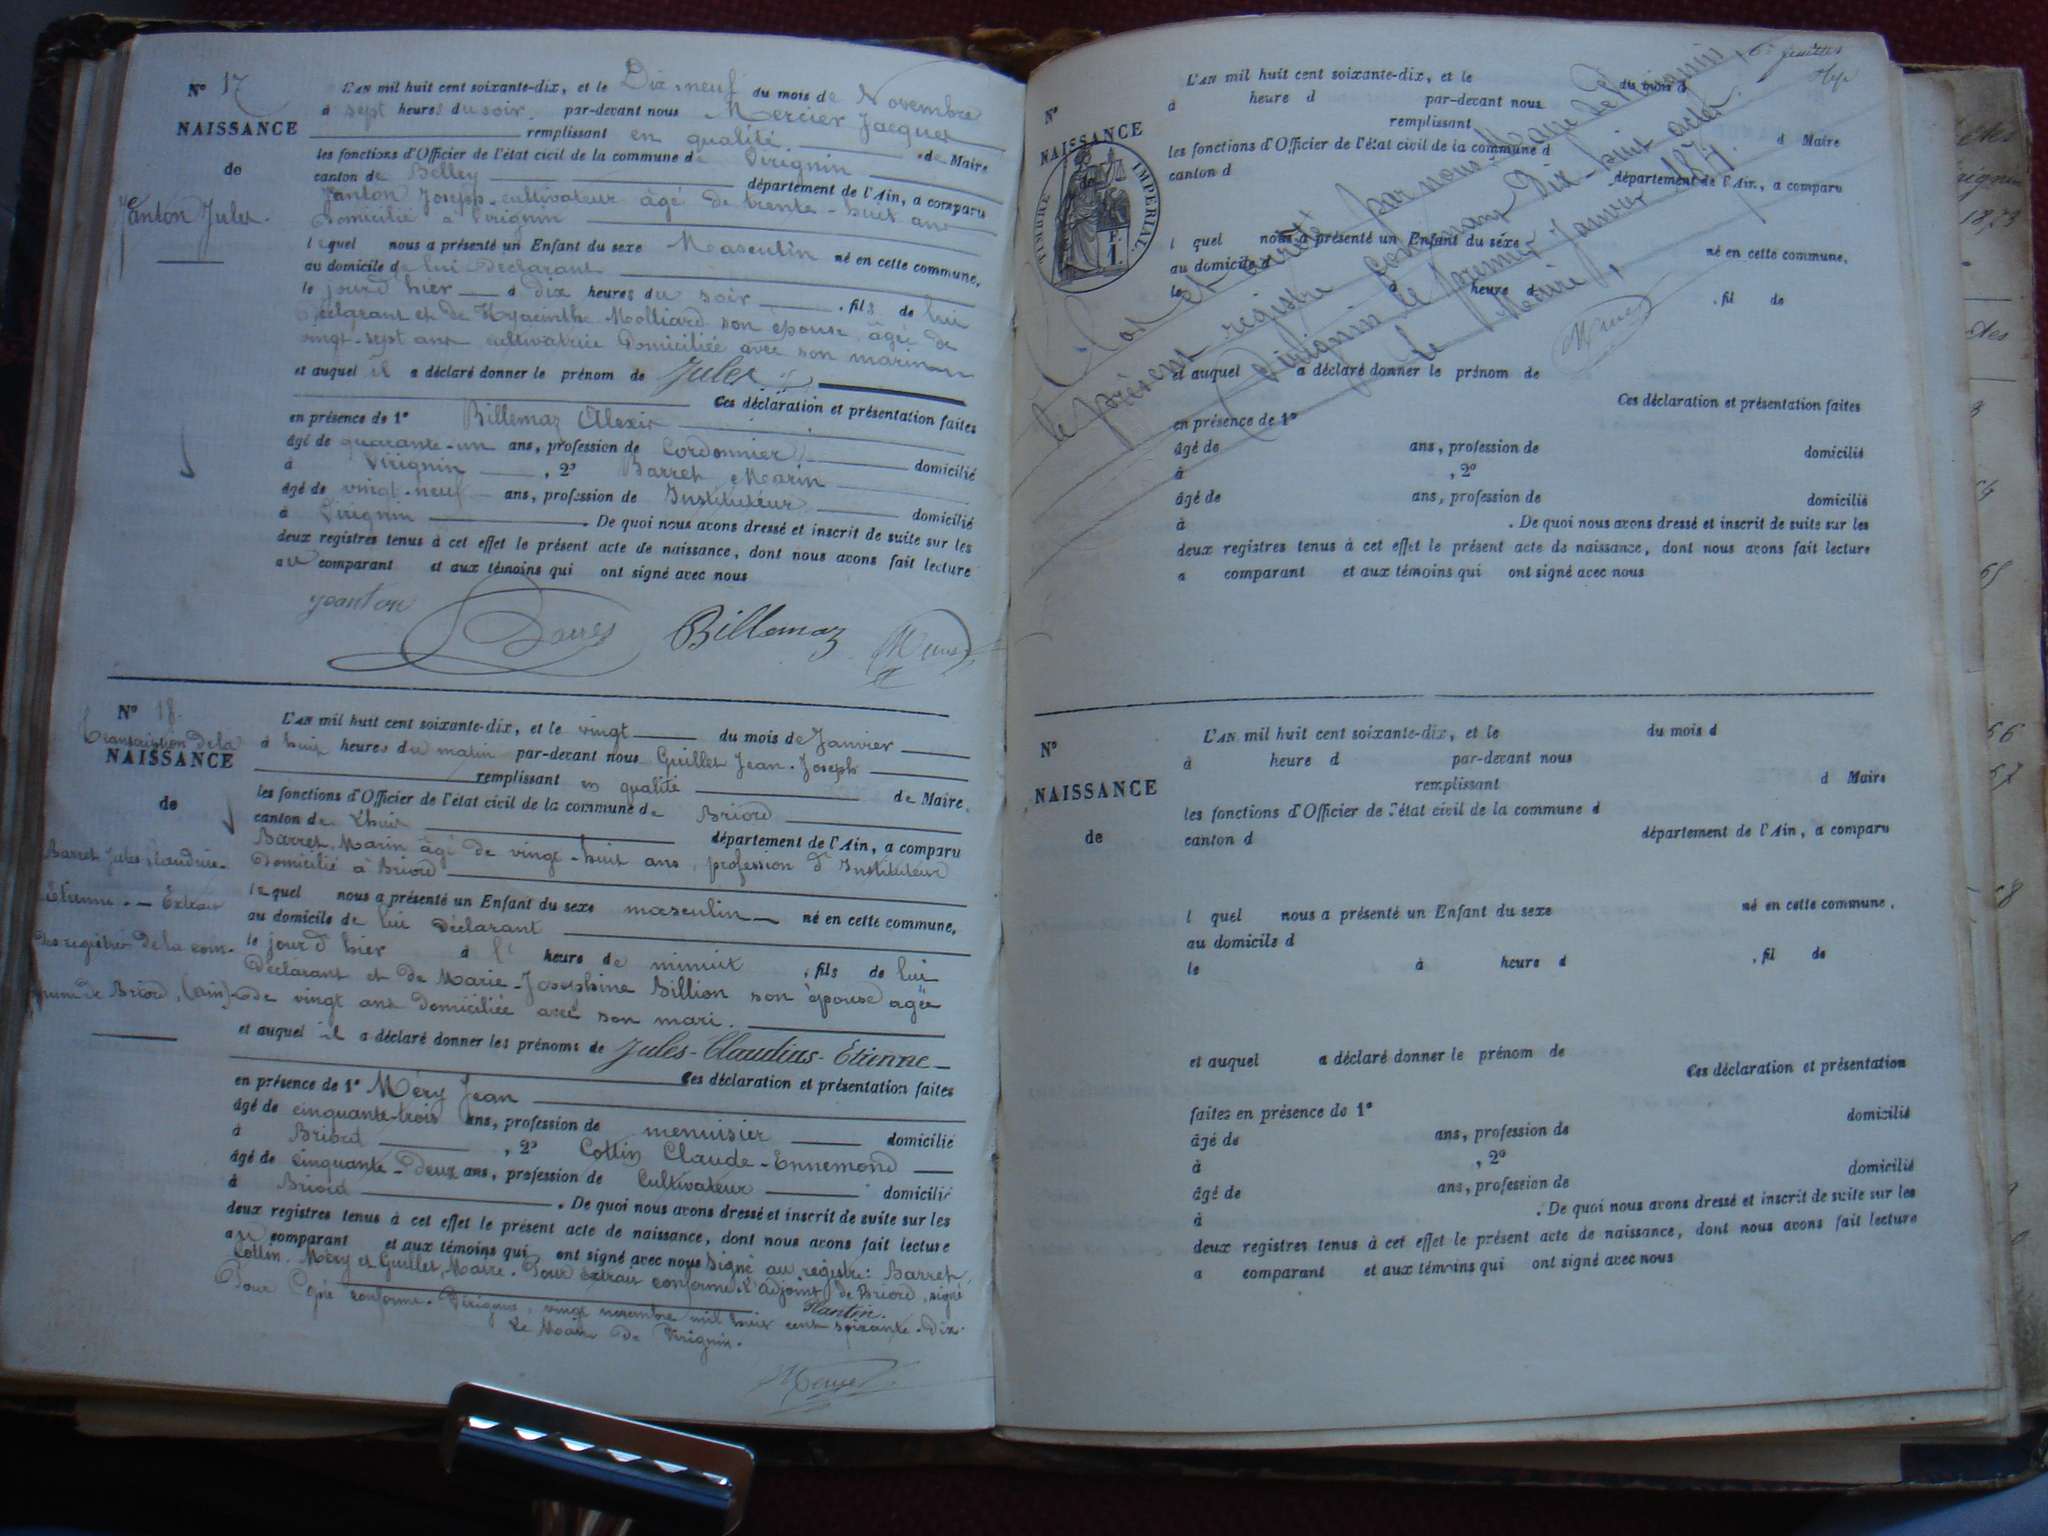 N° 17
NAISSANCE
de
Janton Jules.
L'AN mil huit cent soixante-dix, et le Dix-neuf du mois de Novembre
à sept heures du soir, par-devant nous Mercier Jacques
remplissant en qualité de Maire
les fonctions d'Officier de l'état civil de la commune de Virignin
canton de Belley département de l'Ain, a comparu
Janton Joseph, cultivateur âgé de trente-huit ans
Domicilié à Virignin
lequel nous a présenté un Enfant du sexe Masculin né en cette commune,
au domicile de lui Déclarant
le jour d'hier à dix heures du soir, fils de lui
Déclarant et de Hyacinthe Molliard son épouse, âgée de
vingt-sept ans cultivatrice Domiciliée avec son mari
et auquel il a déclaré donner le prénom de Jules
Ces déclaration et présentation faites
en présence de 1° Billemaz Alexis
âgé de quarante-un ans, profession de Cordonnier domicilié
à Virignin, 2° Barret Marin
âgé de vingt-neuf ans, profession de Instituteur domicilié
à Virignin. De quoi nous avons dressé et inscrit de suite sur les
deux registres tenus à cet effet le présent acte de naissance, dont nous avons fait lecture
au comparant et aux témoins qui ont signé avec nous
Janton Barret Billemaz
N° 18.
Transcription de la
NAISSANCE
de
Barret Jules, Claudius-
Etienne. - Extrait
des registres de la com-
mune de Briord, (Ain)
L'AN mil huit cent soixante-dix, et le vingt du mois de Janvier
à huit heures du matin par-devant nous Guillet Jean-Joseph
remplissant en qualité de Maire
les fonctions d'Officier de l'état civil de la commune de Briord
canton de Lhuis département de l'Ain, a comparu
Barret, Marin âgé de vingt-huit ans, profession d'Instituteur
Domicilié à Briord
lequel nous a présenté un Enfant du sexe masculin né en cette commune,
au domicile de lui Déclarant
le jour d'hier à heure de minuit, fils de lui
Déclarant et de Marie-Josephine Billion son épouse agée
de vingt ans domiciliée avec son mari.
et auquel il a déclaré donner les prénoms de Jules-Claudius-Etienne
Ces déclaration et présentation faites
en présence de 1° Méry Jean
âgé de cinquante-trois ans, profession de menuisier domicilié
à Briord, 2° Cottin Claude-Ennemond
âgé de cinquante-deux ans, profession de Cultivateur domicilié
à Briord. De quoi nous avons dressé et inscrit de suite sur les
deux registres tenus à cet effet le présent acte de naissance, dont nous avons fait lecture
au comparant et aux témoins qui ont signé avec nous Signé au registre: Barret,
Cottin, Méry et Guillet, Maire. Pour extrait conforme L'adjoint de Briord, signé
Plantin.
Pour Copie conforme. Virignin, vingt novembre mil huit cent soixante-dix.
Le Maire de Virignin.
N°
NAISSANCE
de
TIMBRE IMPERIAL
F.
1.
L'AN mil huit cent soixante-dix, et le du mois d
à heure d par-devant nous
remplissant d Maire
les fonctions d'Officier de l'état civil de la commune d
canton d département de l'Ain, a comparu
l quel nous a présenté un Enfant du sexe né en cette commune,
au domicile d
le à heure d , fil de
et auquel a déclaré donner le prénom de
Ces déclaration et présentation faites
en présence de 1°
âgé de ans, profession de domicilié
à , 2°
âgé de ans, profession de domicilié
à . De quoi nous avons dressé et inscrit de suite sur les
deux registres tenus à cet effet le présent acte de naissance, dont nous avons fait lecture
a comparant et aux témoins qui ont signé avec nous
Clos et arrêté par nous, Maire de Virignin,
le présent registre contenant Dix-huit actes.
Virignin le premier Janvier 1871.
Le Maire,
N°
NAISSANCE
de
L'AN mil huit cent soixante-dix, et le du mois d
à heure d par-devant nous
remplissant d Maire
les fonctions d'Officier de l'état civil de la commune d
canton d département de l'Ain, a comparu
l quel nous a présenté un Enfant du sexe né en cette commune,
au domicile d
le à heure d , fil de
et auquel a déclaré donner le prénom de
Ces déclaration et présentation
faites en présence de 1° domicilié
âgé de ans, profession de
à , 2° domicilié
âgé de ans, profession de
à . De quoi nous avons dressé et inscrit de suite sur les
deux registres tenus à cet effet le présent acte de naissance, dont nous avons fait lecture
a comparant et aux témoins qui ont signé avec nous